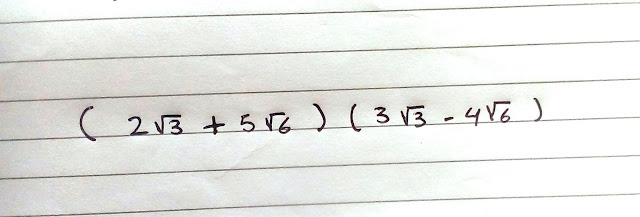 ( 2√3 + 5√6 ) ( 3√3 - 4√6 )